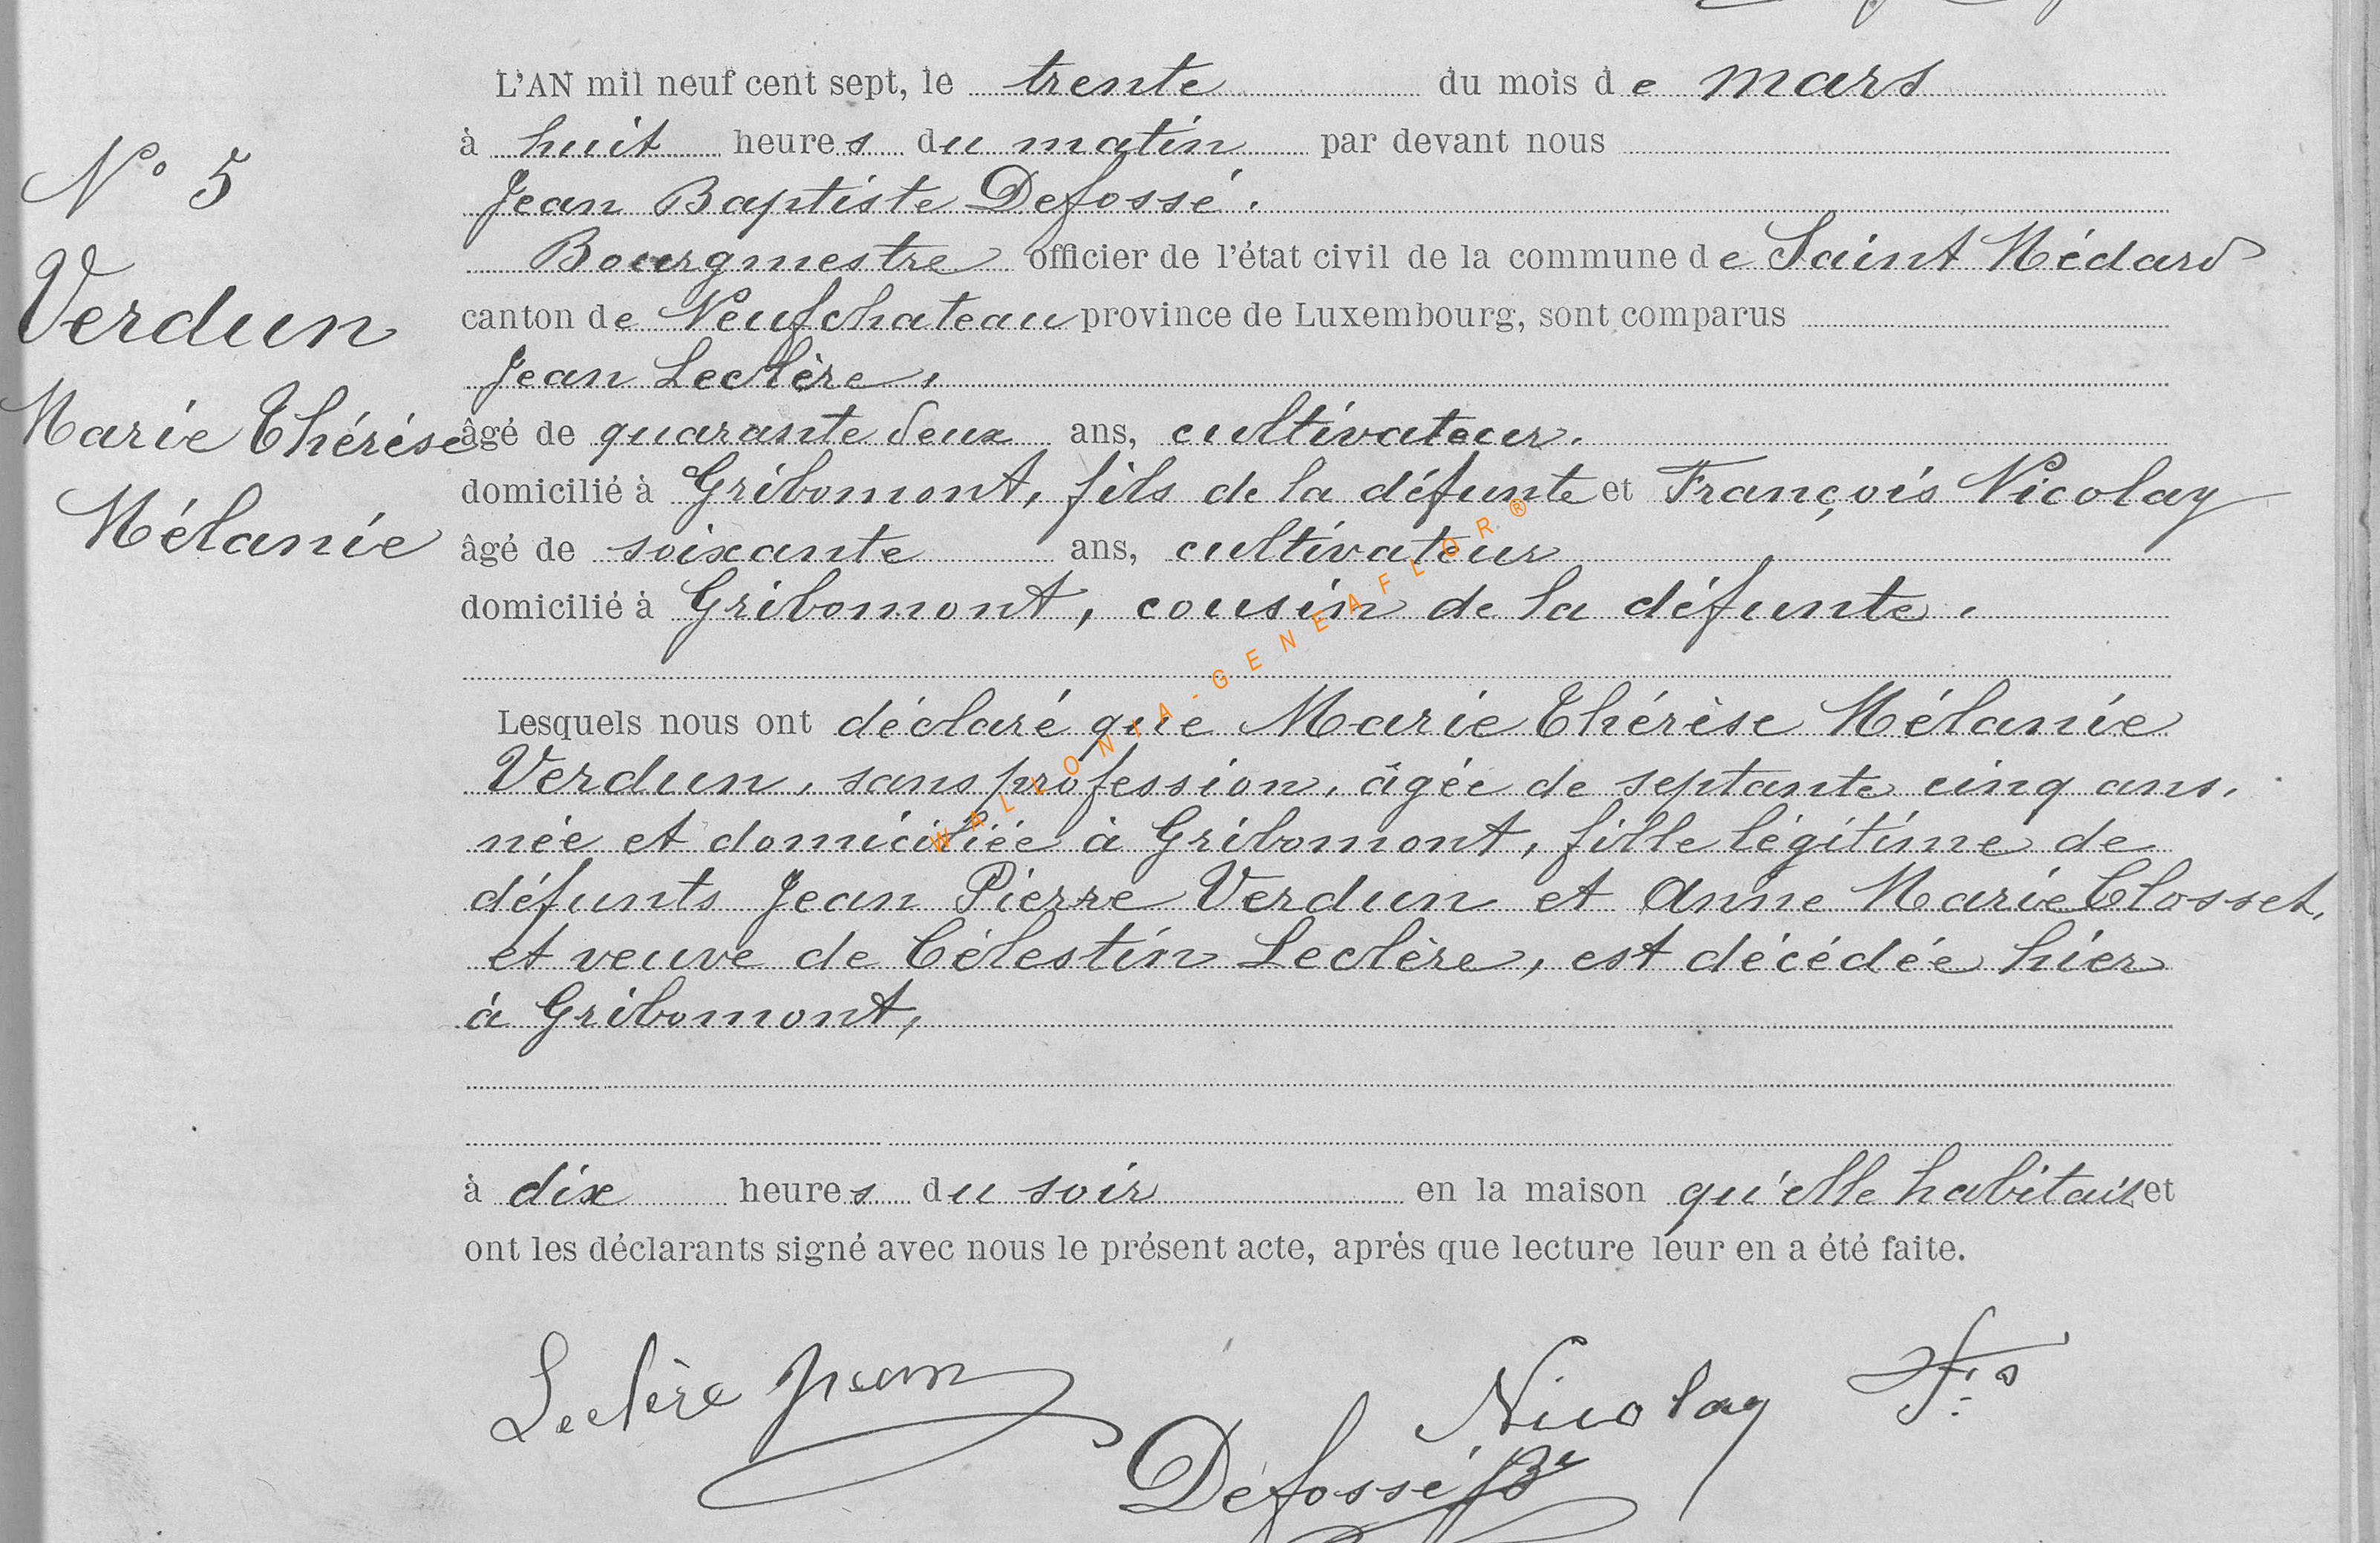 N° 5
Verdun
Marie Thérèse
Mélanie
L'AN mil neuf cent sept, le trente du mois de mars
à huit heures du matin par devant nous
Jean Baptiste Defossé.
Bourgmestre officier de l'état civil de la commune de Saint Médard
canton de Neufchateau province de Luxembourg, sont comparus
Jean Leclère,
âgé de quarante deux ans, cultivateur.
domicilié à Gribomont, fils de la défunte et François Nicolay
âgé de soixante ans, cultivateur
domicilié à Gribomont, cousin de la défunte.
Lesquels nous ont déclaré que Marie Thérèse Mélanie
Verdun, sans profession, âgée de septante cinq ans,
née et domiciliée à Gribomont, fille légitime de
défunts Jean Pierre Verdun et Anne Marie Closset,
et veuve de Célestin Leclère, est décédée hier
à Gribomont,
à dix heures du soir en la maison qu'elle habitait et
ont les déclarants signé avec nous le présent acte, après que lecture leur en a été faite.
Leclère Jean
Nicolay Fs
Defossé JB
WALLONIA-GENEAFLOR®